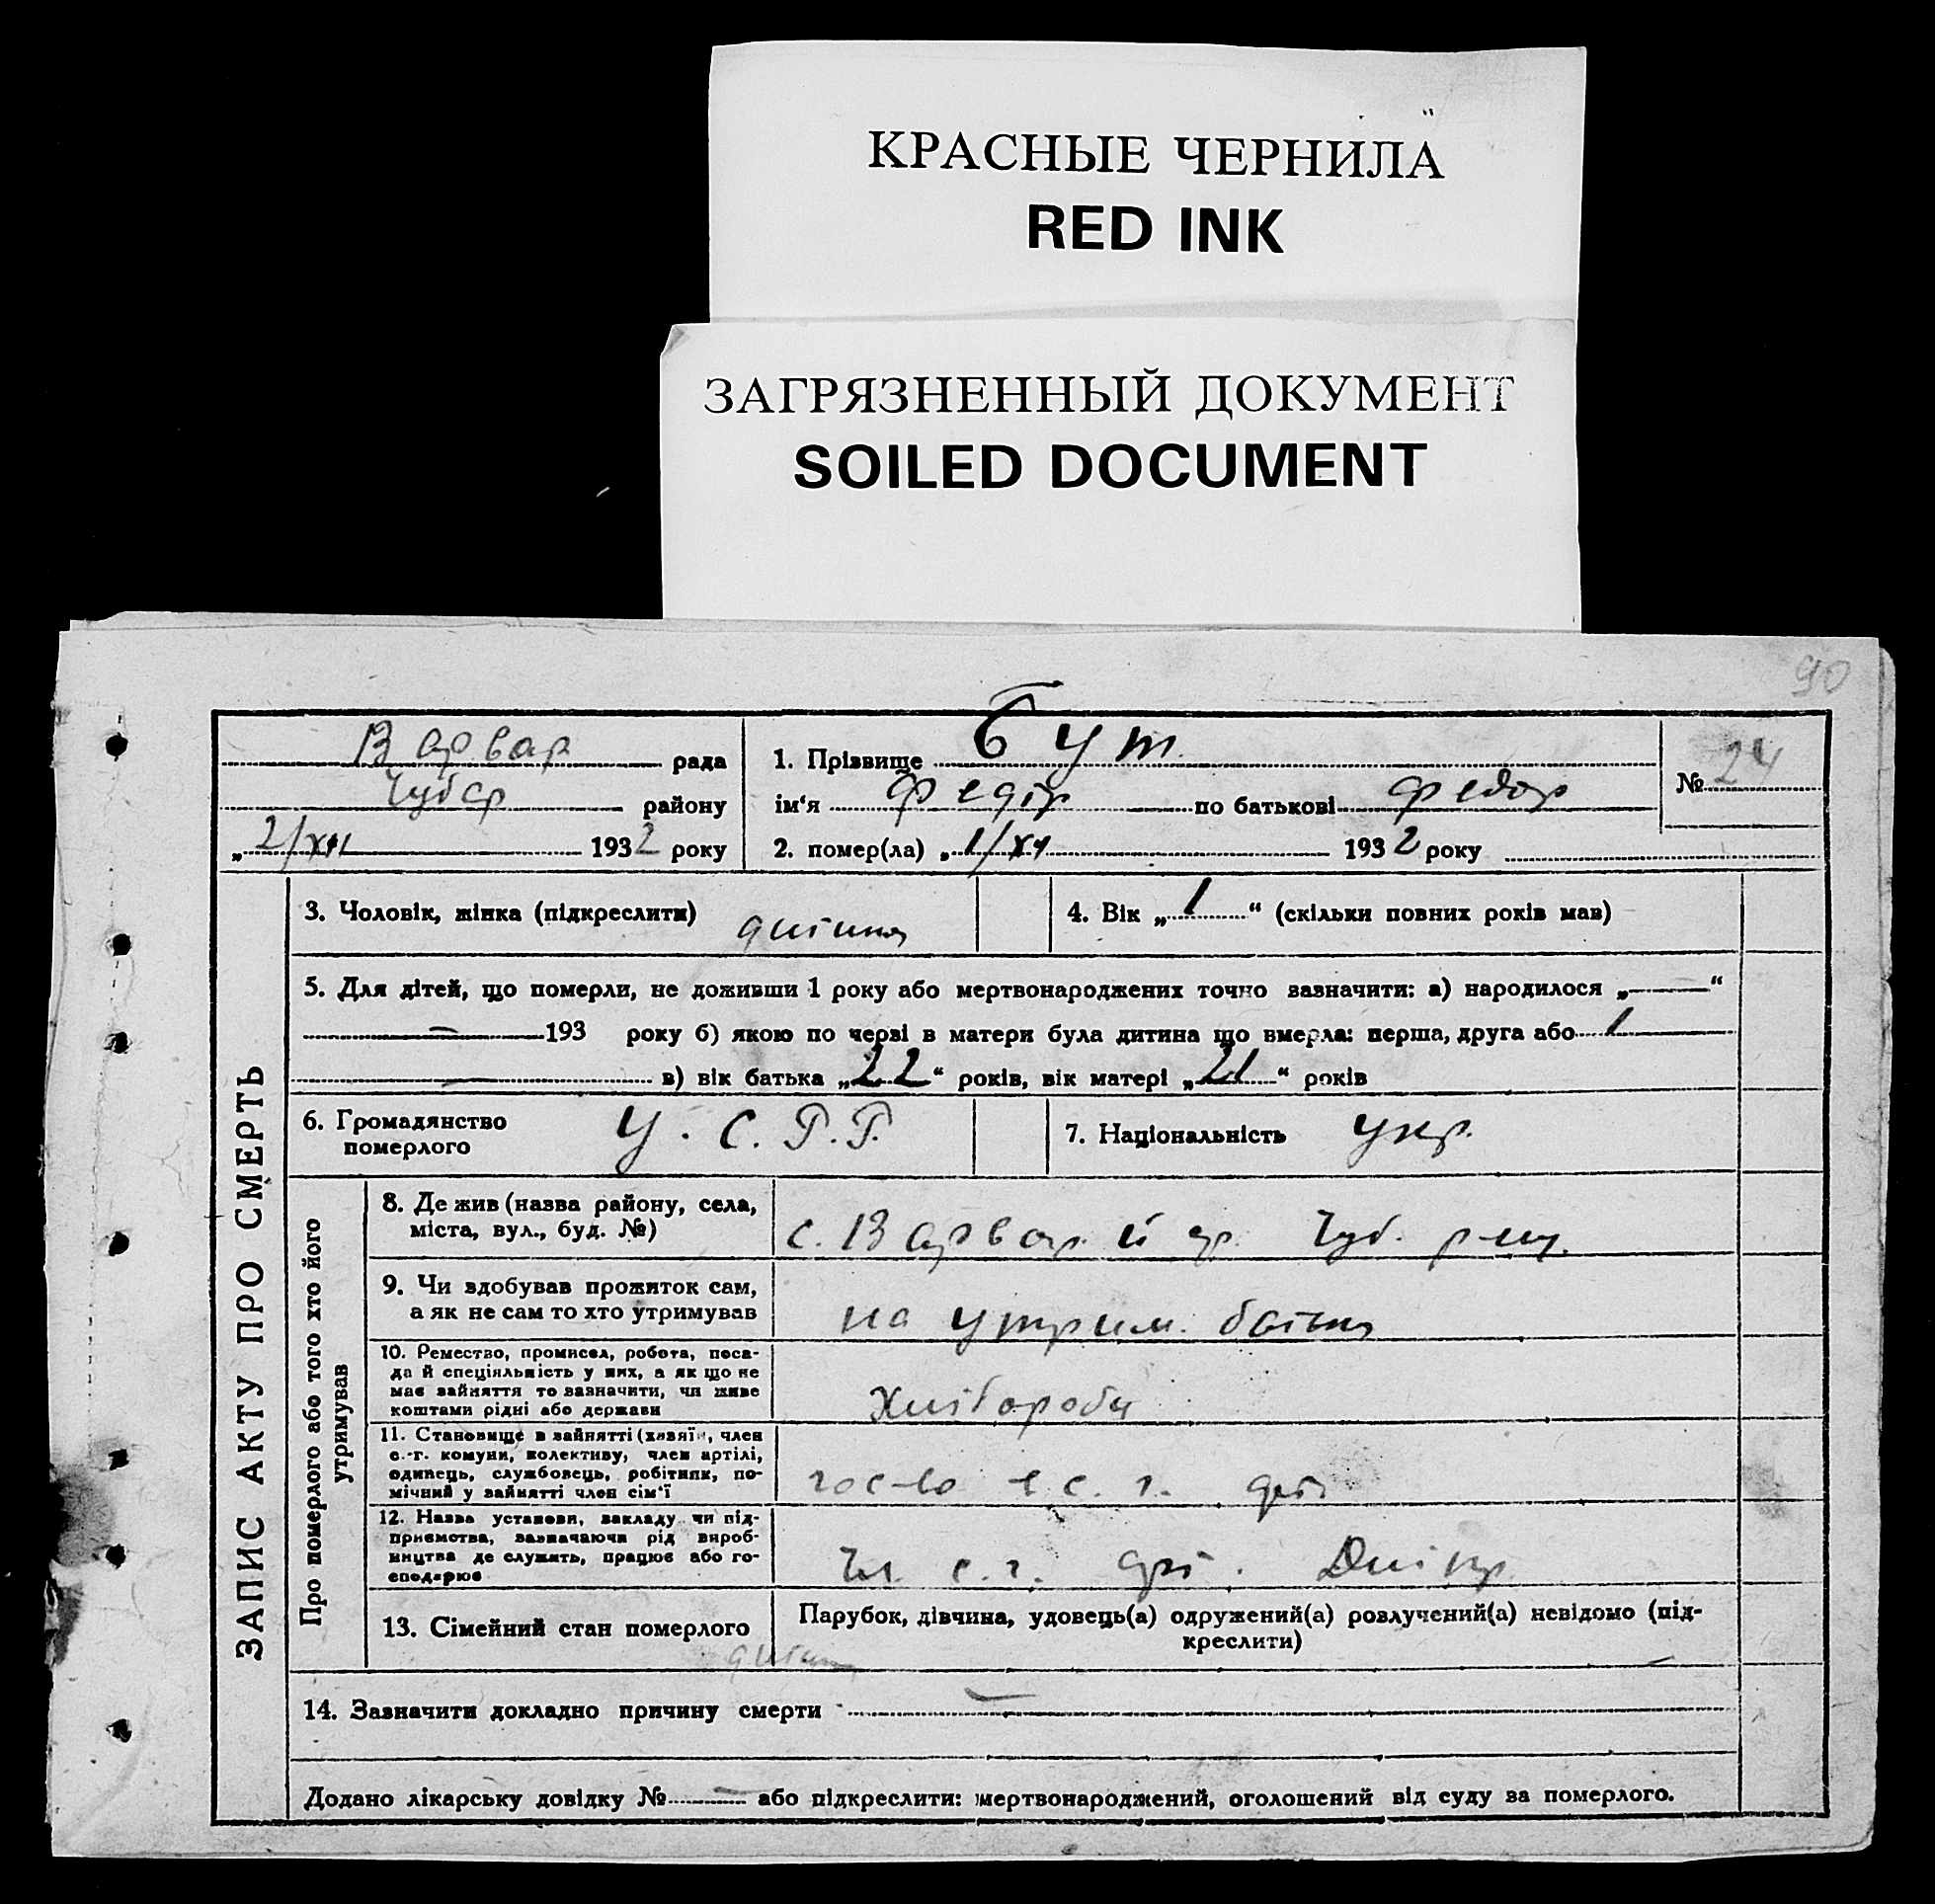 КРАСНЫЕ ЧЕРНИЛА
RED INK
ЗАГРЯЗНЕННЫЙ ДОКУМЕНТ
SOILED DOCUMENT
90
Варвар рада
Чубар району
„2/XII 1932 року
1. Прізвище Бут
ім‘я Федір по батькові Федор
2. помер(ла) „1/XII 1932 року
№ 24
ЗАПИС АКТУ ПРО СМЕРТЬ
3. Чоловік, жінка (підкреслити) дитина
4. Вік „1“ (скільки повних років мав)
5. Для дітей, що померли, не доживши 1 року або мертвонароджених точно зазначити: а) народилося „—“
— 193 року б) якою по черві в матери була дитина що вмерла: перша, друга або 1
— в) вік батька „22“ років, вік матері „21“ років
6. Громадянство
померлого
У. С. Р. Р.
7. Національність укр.
Про померлого або того хто його
утримував
8. Де жив (назва району, села,
міста, вул., буд. №)
с. Варвар. Чуб. р-ну.
9. Чи здобував прожиток сам,
а як не сам то хто утримував
на утрим. батька
10. Ремество, промисел, робота, поса-
да й спеціяльність у них, а як що не
має зайняття то зазначити, чи живе
коштами рідні або держави
хлібороби
11. Становище в зайнятті (хазяїн, член
с.-г. комуни, колективу, член артілі,
одинець, службовець, робітник, по-
мічний у зайнятті член сім‘ї
с. г.
12. Назва установи, закладу чи під-
приємства, зазначаючи рід вироб-
ництва де служить, працює або го-
сподарює
Чл. с. г. арт. Дніпр
13. Сімейний стан померлого
дитина
Парубок, дівчина, удовець(а) одружений(а) розлучений(а) невідомо (під-
креслити)
14. Зазначити докладно причину смерти —
Додано лікарську довідку № — або підкреслити: мертвонароджений, оголошений від суду за померлого.